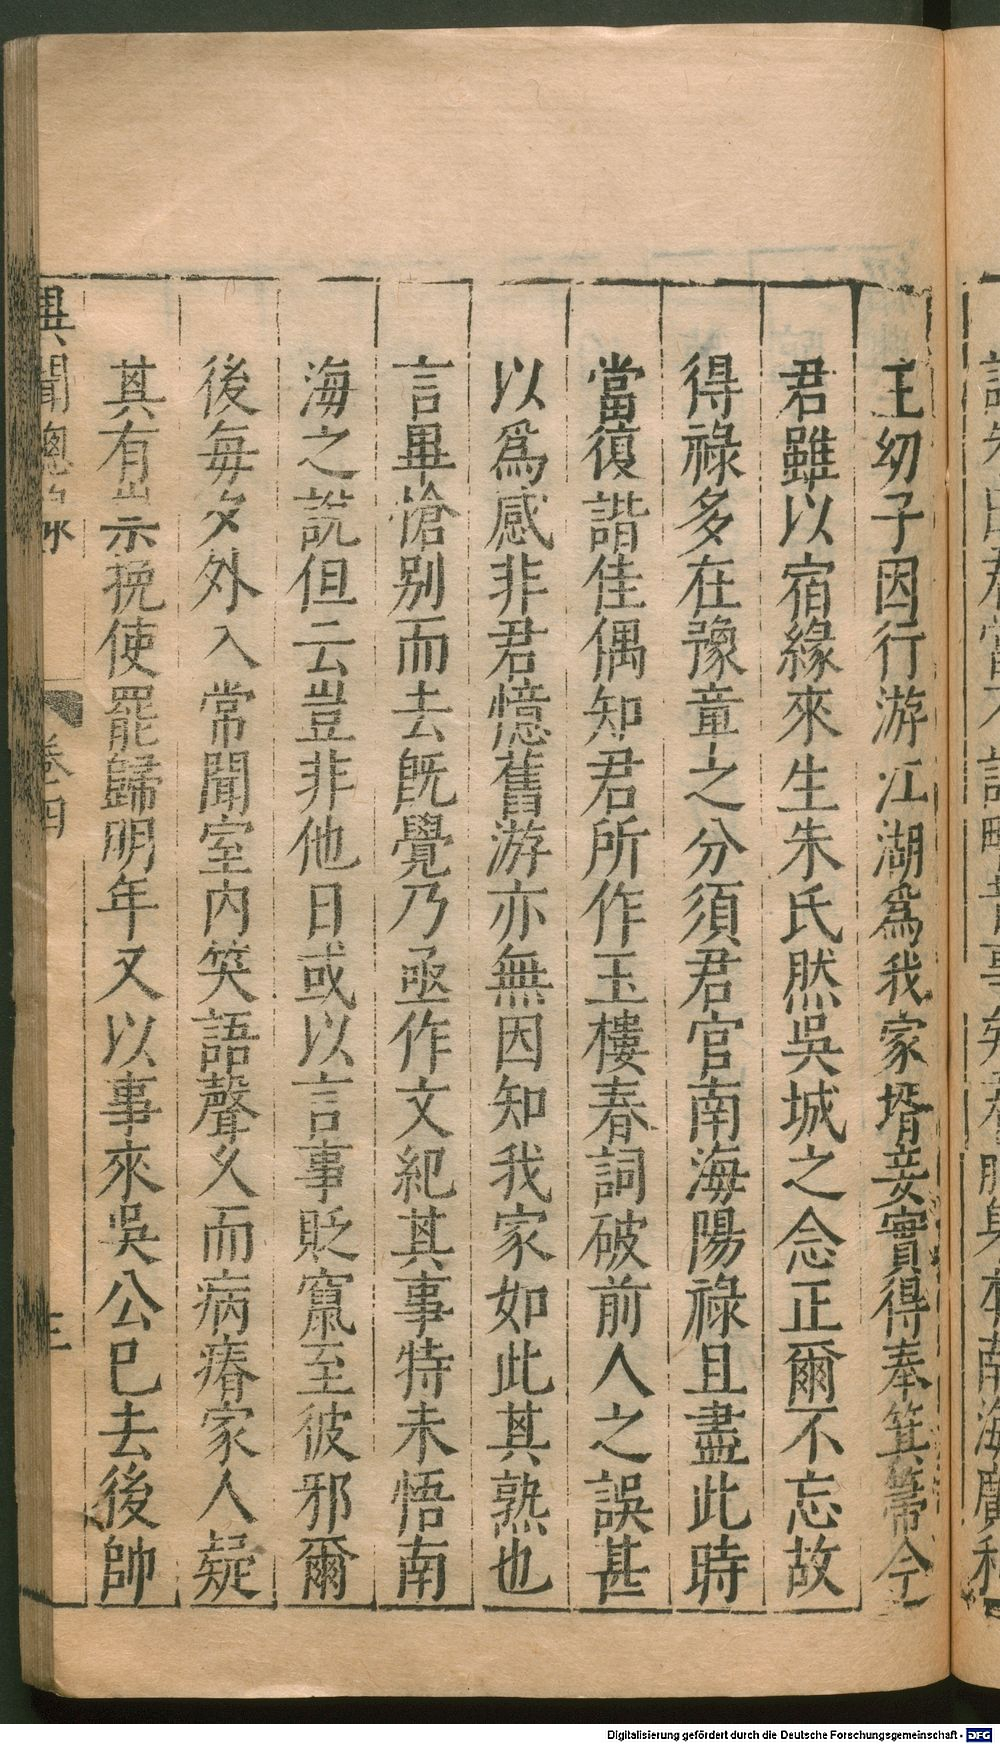 王幼子因行游江湖爲我家壻妾實得奉箕箒今
君雖以宿緣來生朱氏然吳城之念正爾不忘故
得祿多在豫章之分須君官南海陽祿且盡此時
當復諧佳偶知君所作玉樓春詞破前人之誤甚
以爲感非君憶舊游亦無因知我家如此其熟也
言畢愴別而去旣覺乃亟作文紀其事特未悟南
海之說但云豈非他日或以言事貶竄至彼邪爾
後每夕外入常聞室內笑語聲久而病瘠家人疑
其有祟示挽使罷歸明年又以事來吳公已去後帥
異聞總錄
卷四
三
Digitalisierung gefördert durch die Deutsche Forschungsgemeinschaft - DFG